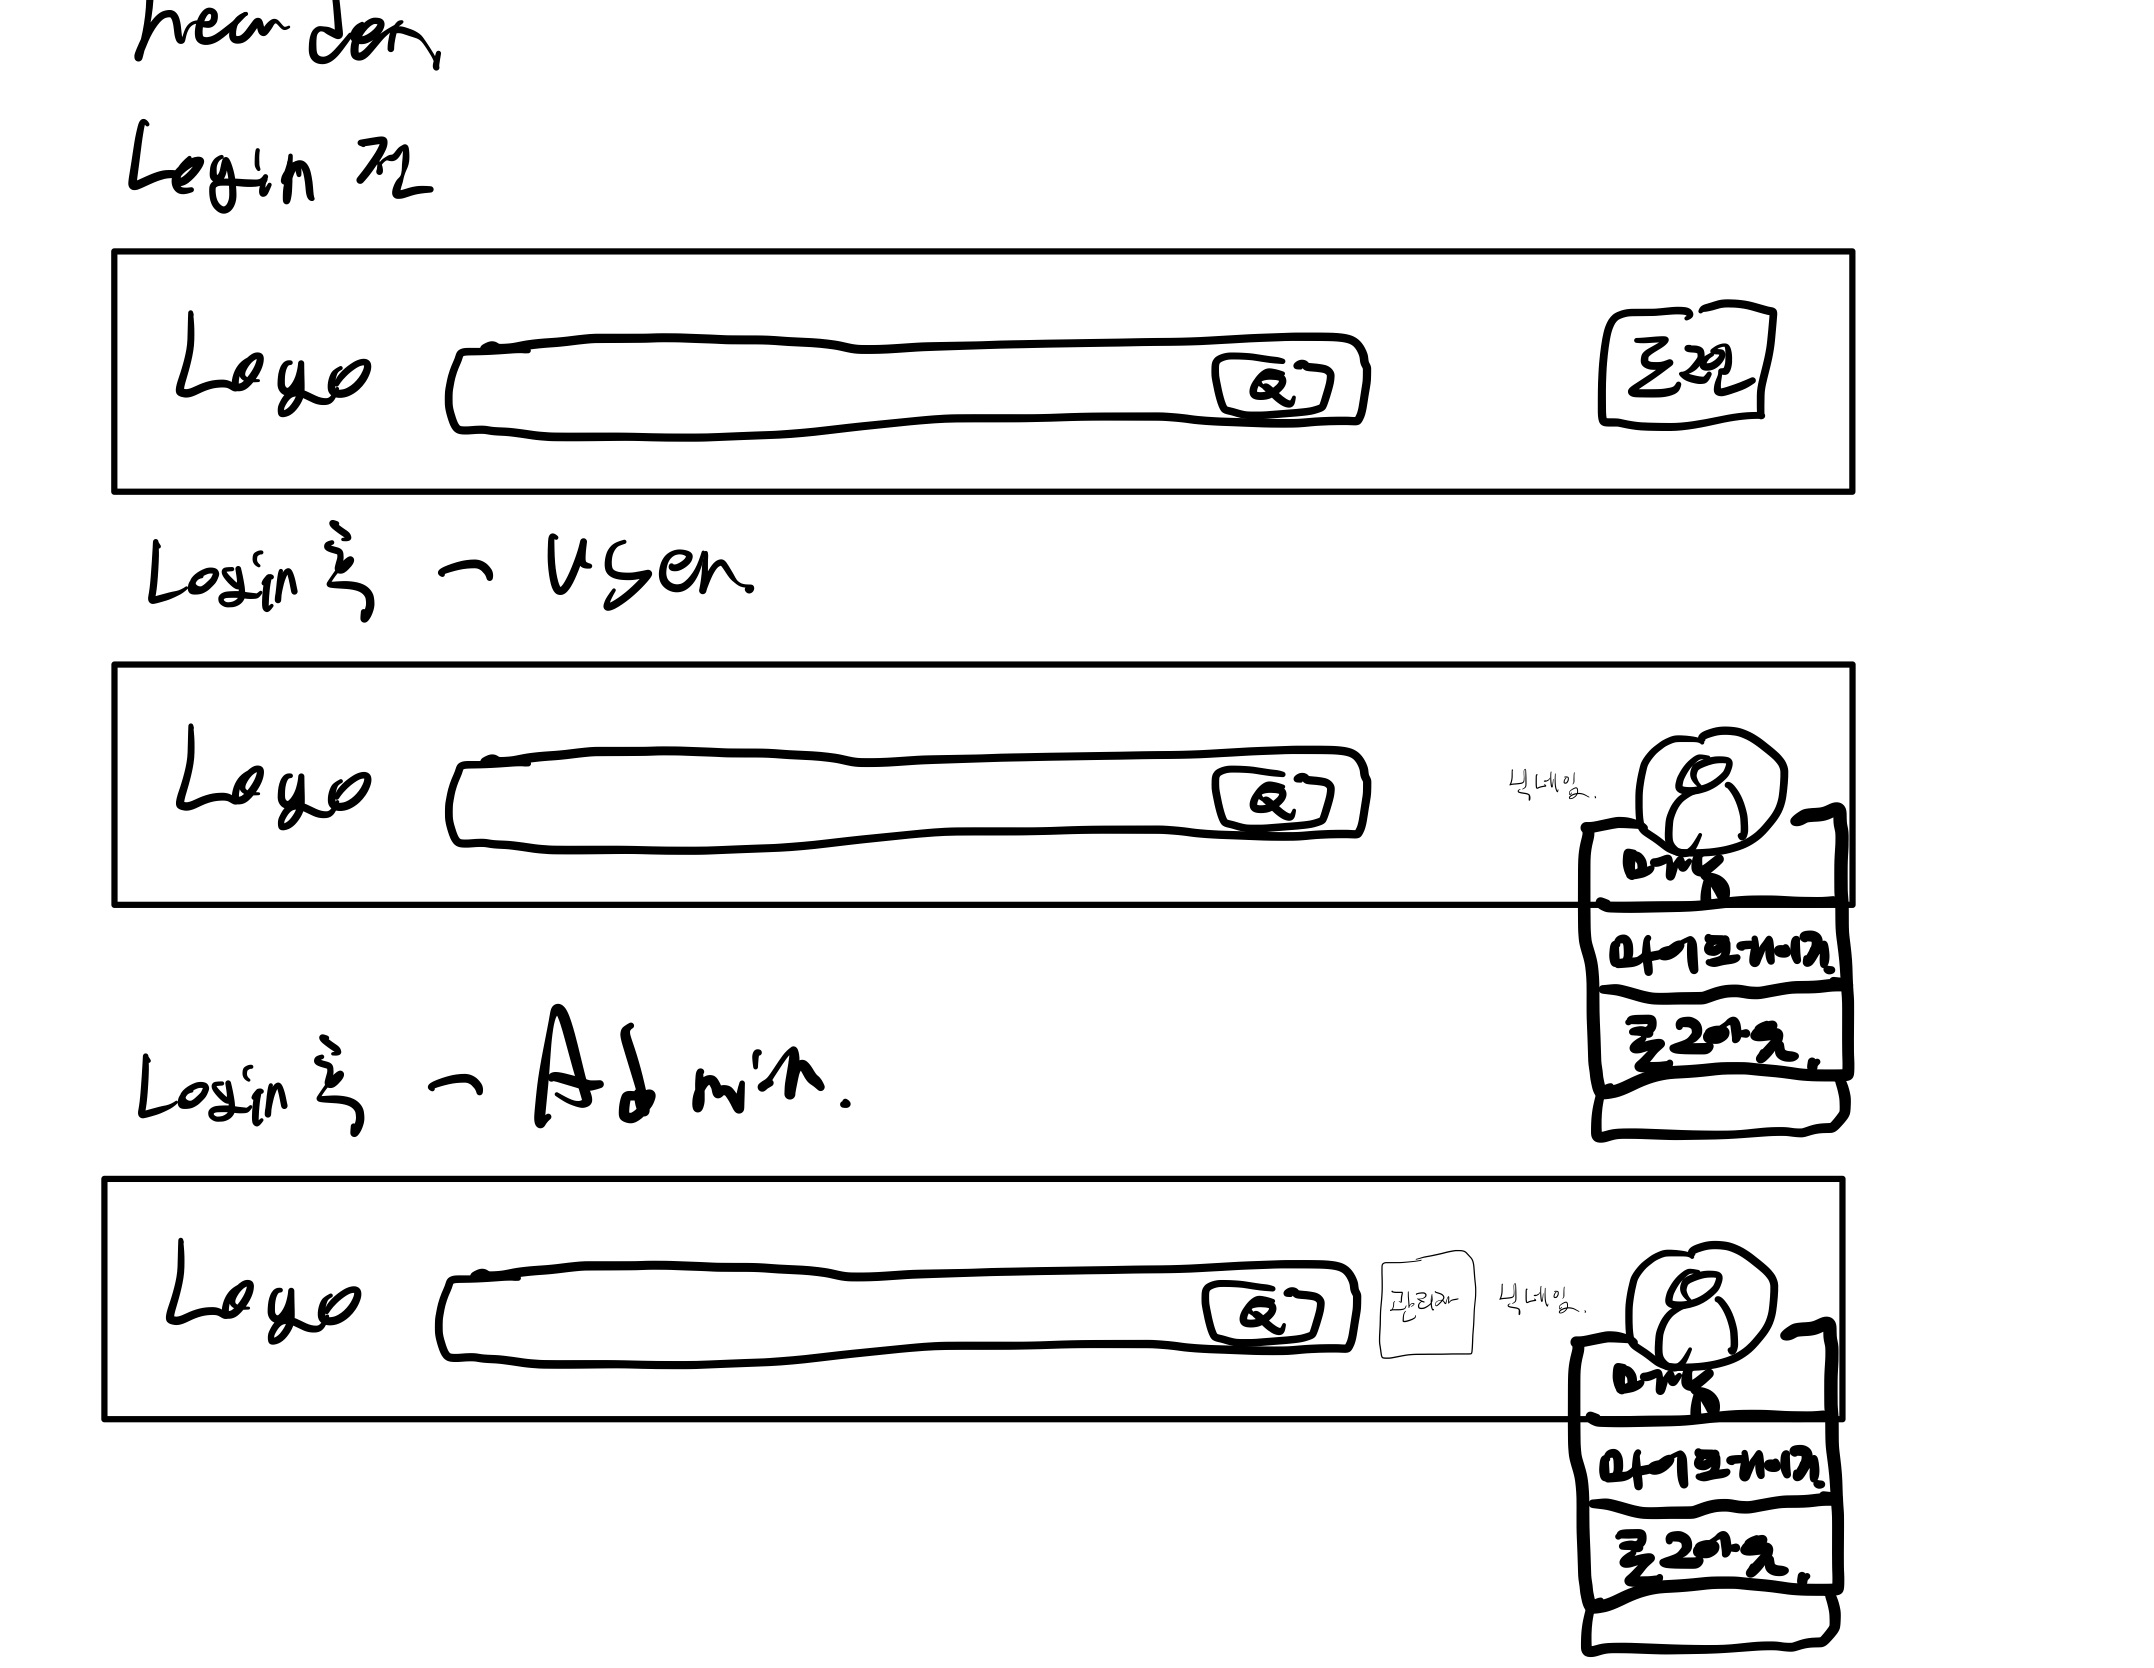 header
Login 전
Logo Q 로그인
Login 후 - User
Logo Q 닉네임.
마이페이지
로그아웃
Login 후 - Admin.
Logo Q 관리자 닉네임.
마이페이지
로그아웃